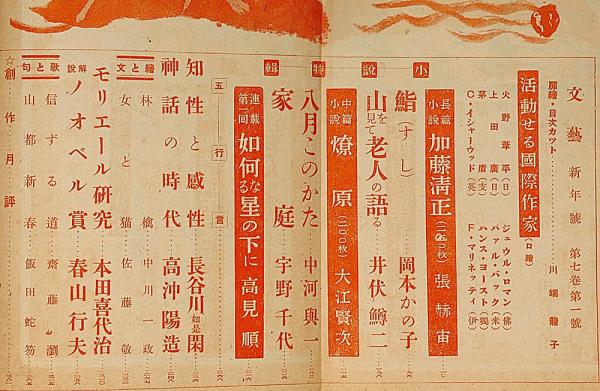 文藝 新年號 第七卷第一號
扉繪・目次カット 川端龍子
活動せる國際作家(口繪)
火野葦平(日) ジュウル・ロマン(佛)
上田廣(日) パァル・バック(米)
茅盾(支) ハンス・ヨースト(獨)
C・イシャーウッド(英) F・マリネッティ(伊)
小說特輯
長篇小說 加藤淸正(二五〇枚) 張赫宙
鮨(すし) 岡本かの子
山を見て老人の語る 井伏鱒二
中篇小說 燎原(二〇〇枚) 大江賢次
八月このかた 中河與一
家庭 宇野千代
連載第一回 如何なる星の下に 高見順
五行言
知性と感性 長谷川如是閑
神話の時代 高沖陽造
繪と文
林檎 中川一政
女と猫 佐藤敬
モリエール研究 本田喜代治
解說 ノオベル賞 春山行夫
歌と句
信ずる道 齋藤瀏
山都新春 飯田蛇笏
☆創作月評